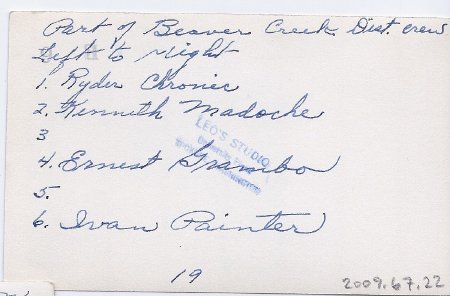 Part of Beaver Creek Dist. crew
Left to Right
1. Ryder Chronic
2. Kenneth Madoche
3
4. Ernest Grambo
5.
6. Ivan Painter
LEO'S STUDIO
19
2009.67.22